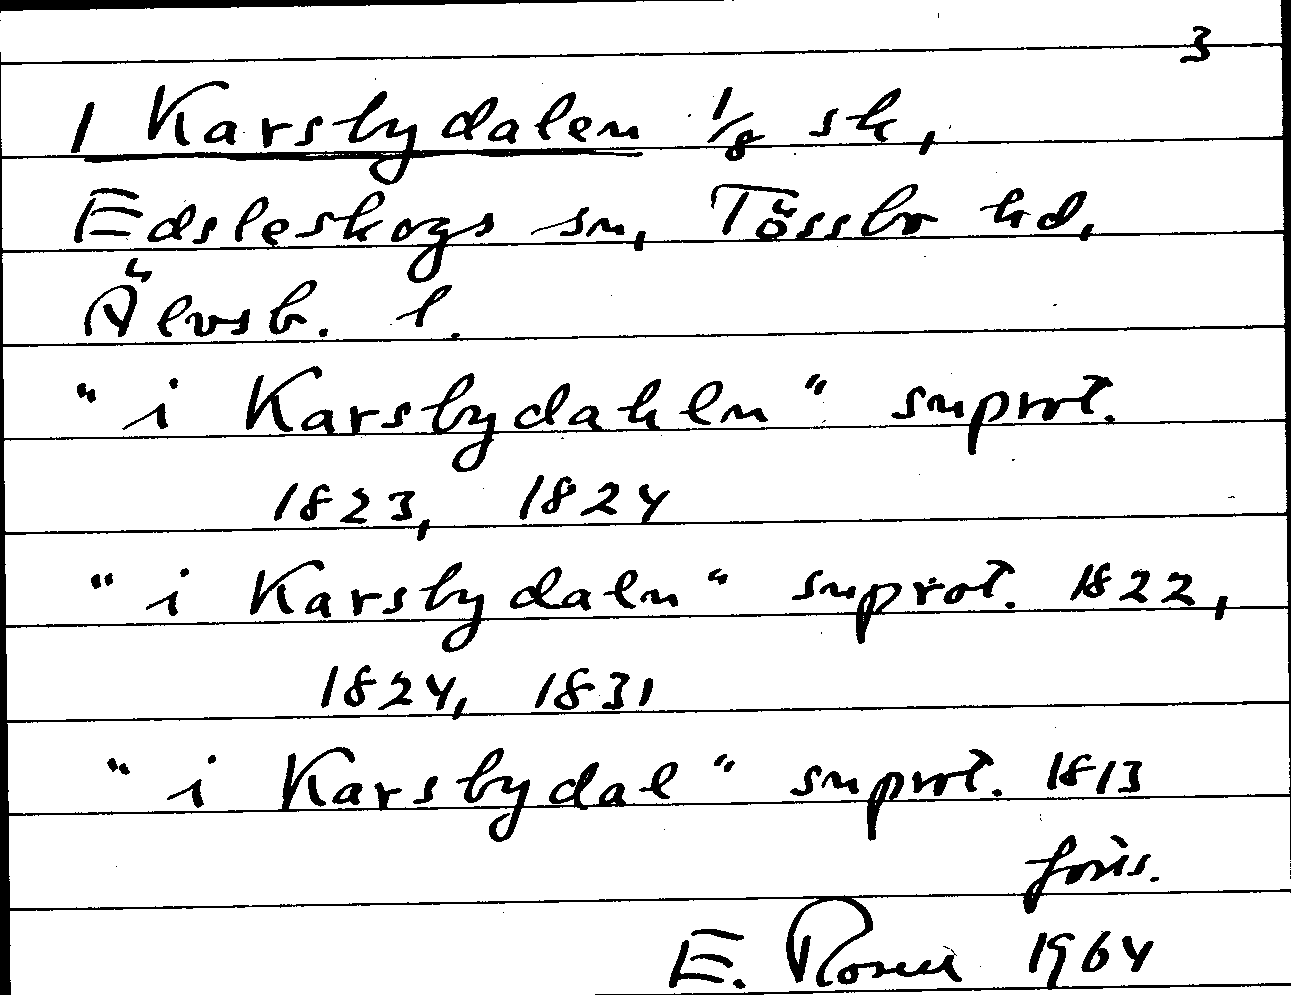 3
1 Karsbydalen 1/8 sk,
Edsleskogs sn, Tössbo hd,
Älvsb. l.
"i Karsbydahln" snprot.
1823, 1824
"i Karsbydaln" snprot. 1822,
1824, 1831
"i Karsbydal" snprot. 1813
E. 1964